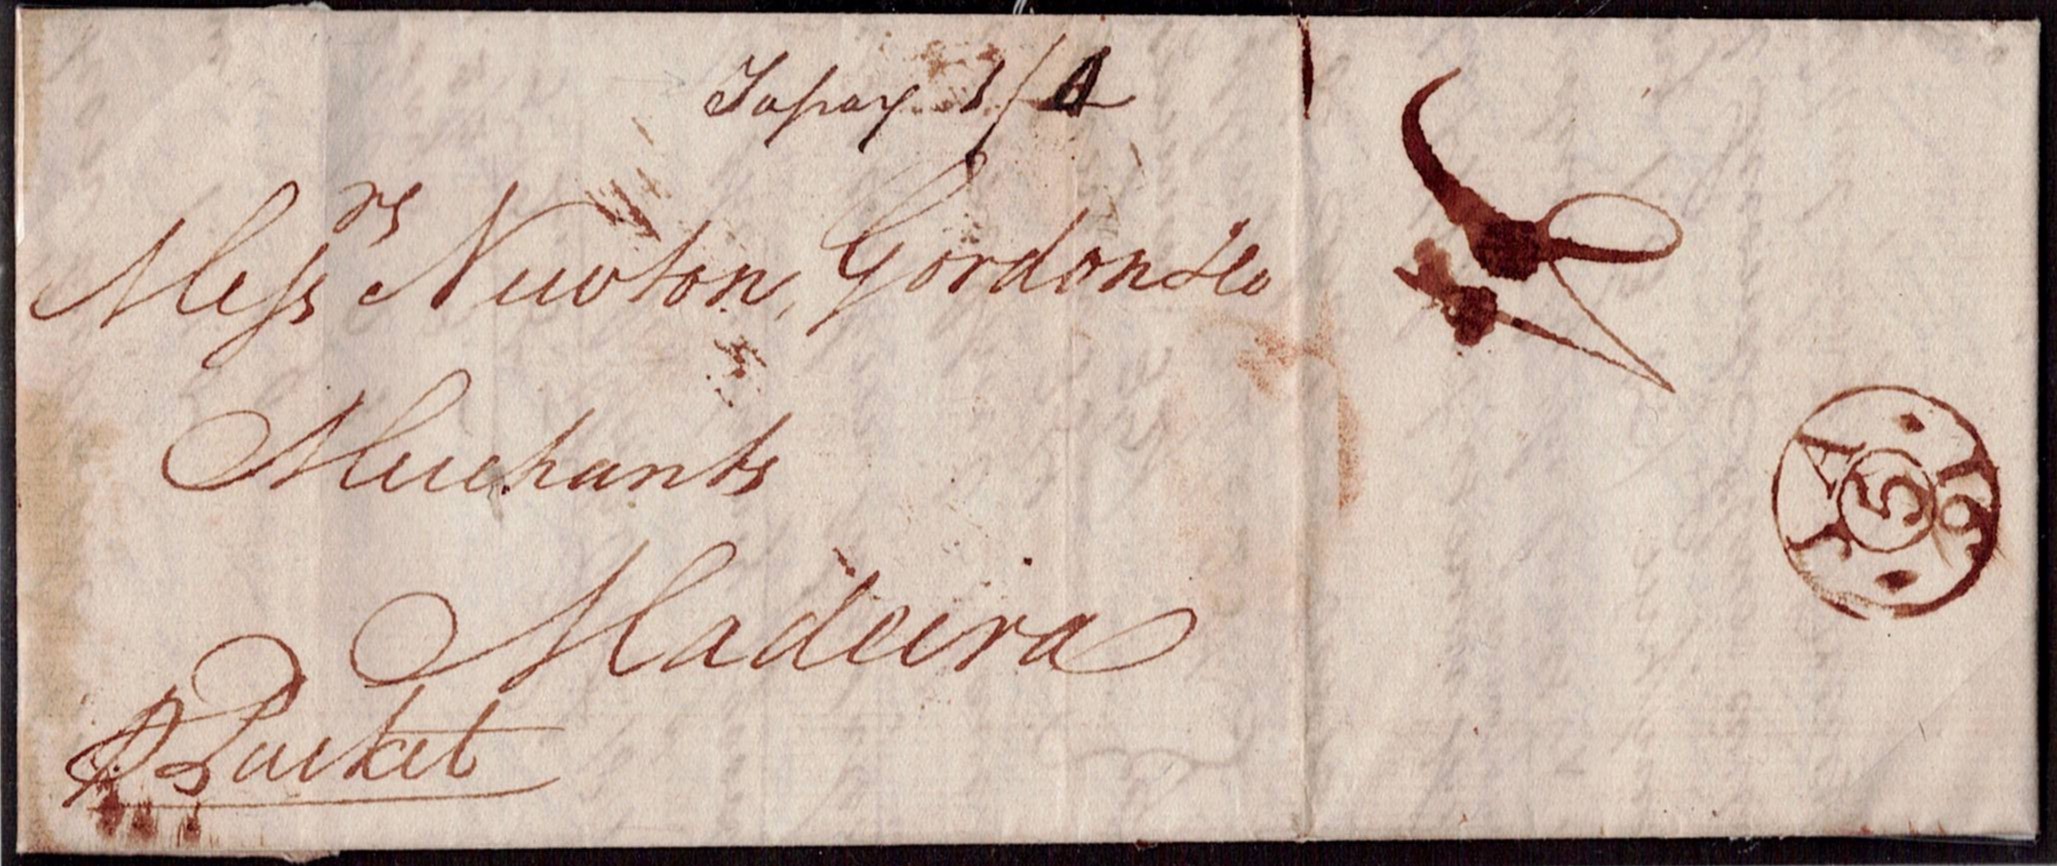 To pay 1/
Messrs Newton, Gordon & Co
Merchants
Madeira
P Packet
JA
5
91